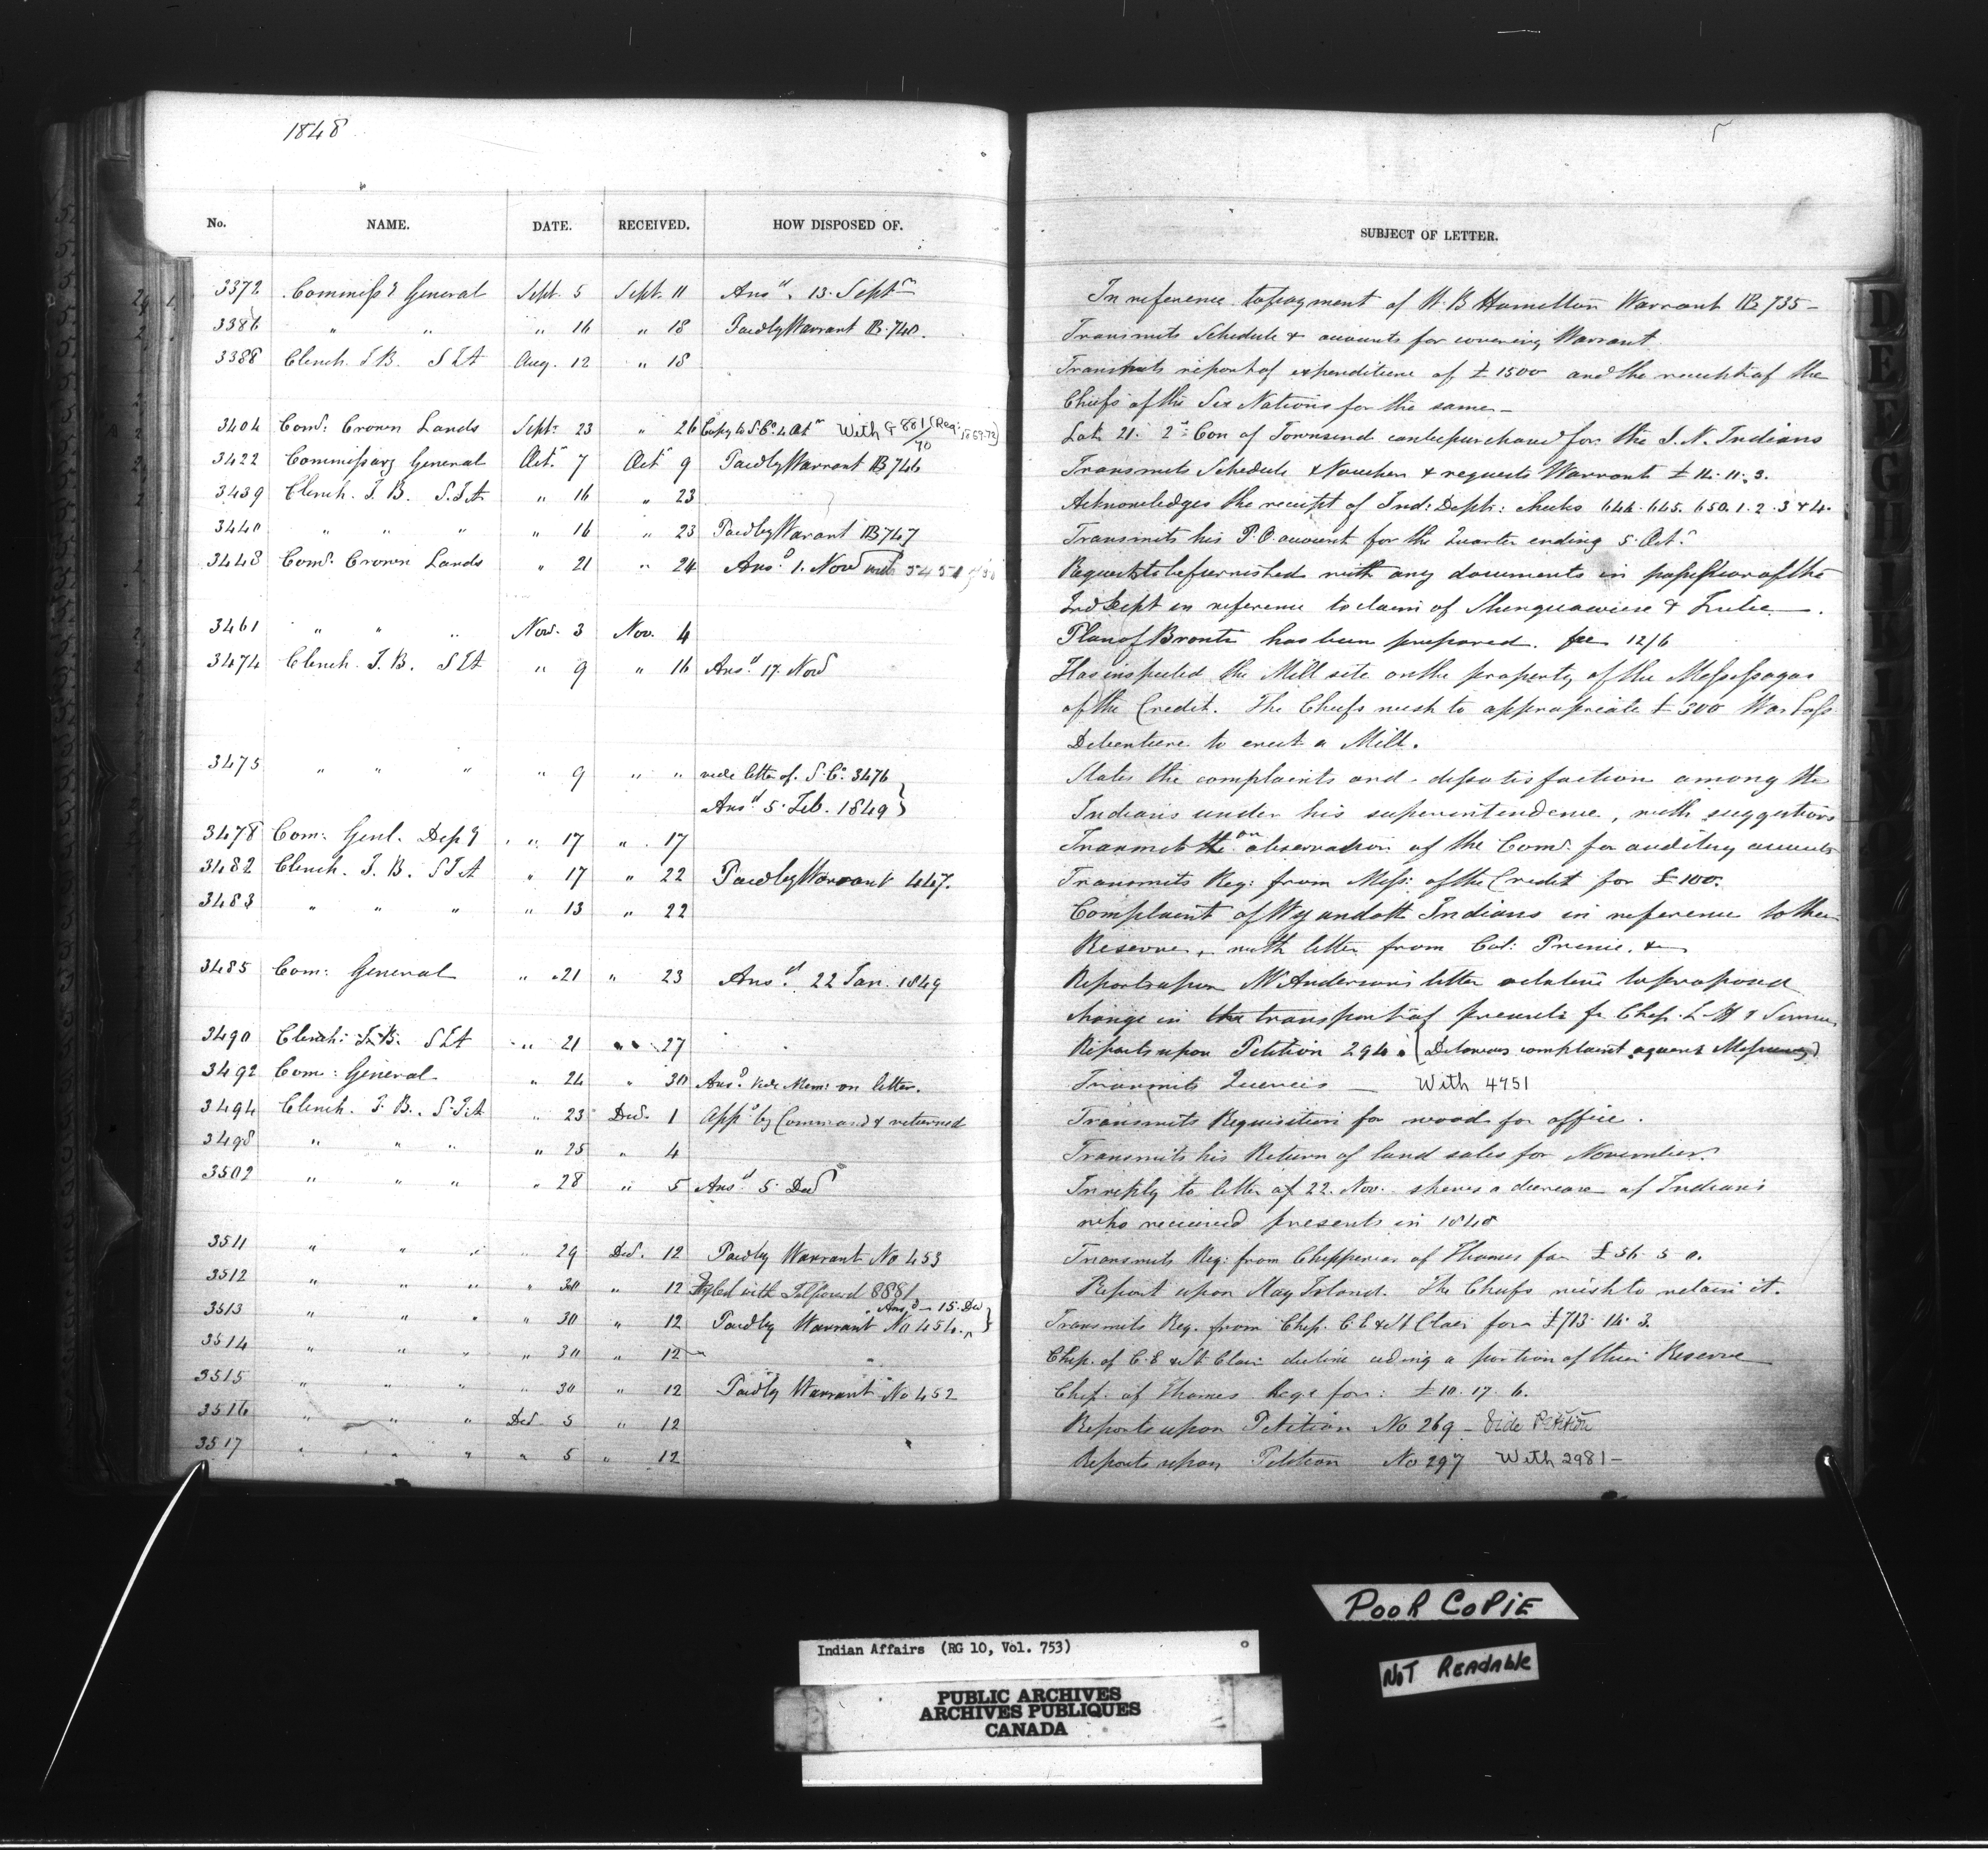 1848
No. NAME. DATE. RECEIVED. HOW DISPOSED OF. SUBJECT OF LETTER.
3372 Commissy General Sept. 5 Sept. 11 Ansd. 13. Septr In reference to payment of W. B Hamilton Warrant B 735 –
3386 " " " 16 " 18 Paid by Warrant B. 740. Transmits Schedule & accounts for covering Warrant
3388 Clench. J B. S I A Aug. 12 " 18 Transmits report of expenditure of £ 1500 and the receipt of the
Chiefs of the Six Nations for the same –
3404 Comr. Crown Lands Septr. 23 " 26 Copy to S. Co. 4 Octr With G 881/70 (Reg: Lot 21. 2d Con of Townsend can be purchased for the S. N. Indians
3422 Commissary General Octr 7 Octr 9 Paid by Warrant B 746 Transmits Schedule & Vouchers & requests Warrant £ 14. 11. 3.
3439 Clench. J. B. S. I A " 16 " 23 Acknowledges the receipt of Ind: Dept: checks 644. 645. 650. 1. 2. 3 & 4.
3440 " " " " 16 " 23 Paid by Warrant B 747 Transmits his P. O. account for the Quarter ending 5. Octr
3448 Comr. Crown Lands " 21 " 24 Ansd. 1. Novr with 5454 Requests to be furnished with any documents in possession of the
Ind Dept in reference to claim of &
3461 " " " Novr. 3 Nov. 4 Plan of Bronte has been prepared. fee 12/6
3474 Clench. J. B. S I A " 9 " 16 Ansd. 17. Novr Has inspected the Mill site on the property of the Messissagas
of the Credit. The Chiefs wish to appropriate £ 500 War Loss
Debenture to erect a Mill.
3475 " " " " 9 " " vide letter of. S. Co. 3476 States the complaints and dissatisfaction among the
Ansd 5. Feb. 1849 } Indians under his superintendence, with suggestions
3478 Com: Genl. Depy " 17 " 17 Transmits the on observation of the Comr. for auditing accounts
3482 Clench. J. B. S I A " 17 " 22 Paid by Warrant 447. Transmits Req: from Miss: of the Credit for £ 100.
3483 " " " " 13 " 22 Complaint of Wyandott Indians in reference to their
Reserve, with letter from Col: Prince. &c
3485 Com: General " 21 " 23 Ansd. 22 Jan. 1849 Reports upon Mr Anderson's letter relative to proposed
change in the transport of presents for Chip. L. H & Simcoe
3490 Clench: J. B. S I A " 21 " 27 Reports upon Petition 294. (Delawares complaint against )
3492 Com: General " 24 " 30 Ansd. vide Mem: on letter. Transmits Queries — With 4951
3494 Clench. J. B. S. I. A " 23 Decr. 1 Appd by Command & returned Transmits Requisition for wood for office.
3498 " " " " 25 " 4 Transmits his Return of land sales for November.
3502 " " " " 28 " 5 Ansd. 5. Decr In reply to letter of 22. Nov. shews a decrease of Indians
who received presents in 1848
3511 " " " " 29 Decr. 12 Paid by Warrant No 453 Transmits Req: from Chippewas of Thames for £ 56. 5 0.
3512 " " " " 30 " 12 Fyled with 8881 Report upon Hay Island. The Chiefs wish to retain it.
3513 " " " " 30 " 12 Paid by Warrant No 454. Ansd – 15. Decr } Transmits Req. from Chip. C. E & St Clair for £ 713. 14. 3.
3514 " " " " 30 " 12 Chip. of C. E & St Clair decline ceding a portion of their Reserve
3515 " " " " 30 " 12 Paid by Warrant No 452 Chip. of Thames Req: for: £ 10. 17. 6.
3516 " " " Decr 5 " 12 Reports upon Petition No 269 – Vide Petition
3517 " " " " 5 " 12 Reports upon Petition No 297 With 2981 –
D
E
G
H
POOR COPIE
NOT READABLE
Indian Affairs (RG 10, Vol. 753)
PUBLIC ARCHIVES
ARCHIVES PUBLIQUES
CANADA